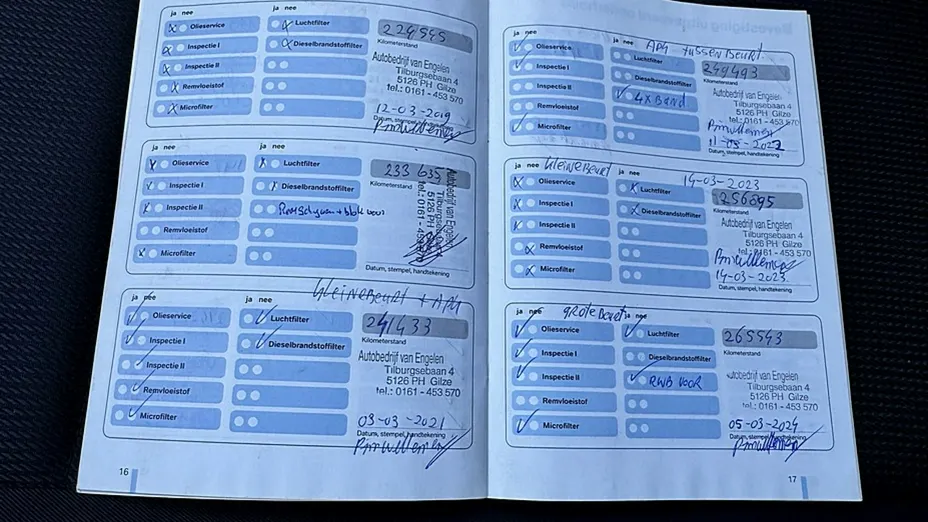 ja nee
ja nee
Olieservice
Luchtfilter
224545
Kilometerstand
Inspectie I
Dieselbrandstoffilter
Autobedrijf van Engelen
Tilburgsebaan 4
5126 PH Gilze
tel.: 0161 - 453 570
Inspectie II
Remvloeistof
Microfilter
12-03-2019
Datum, stempel, handtekening
ja nee
ja nee
Olieservice
Luchtfilter
233 635
Kilometerstand
Inspectie I
Dieselbrandstoffilter
Autobedrijf van Engelen
Tilburgsebaan 4
5126 PH Gilze
tel.: 0161 - 453
Inspectie II
Remvloeistof
Microfilter
Datum, stempel, handtekening
kleine beurt + APK
ja nee
ja nee
Olieservice
Luchtfilter
241433
Kilometerstand
Inspectie I
Dieselbrandstoffilter
Autobedrijf van Engelen
Tilburgsebaan 4
5126 PH Gilze
tel.: 0161 - 453 570
Inspectie II
Remvloeistof
Microfilter
03-03-2021
Datum, stempel, handtekening
16
ja nee
ja nee
APK tussenbeurt
Olieservice
Luchtfilter
249493
Kilometerstand
Inspectie I
Dieselbrandstoffilter
Autobedrijf van Engelen
Tilburgsebaan 4
5126 PH Gilze
tel.: 0161 - 453 570
Inspectie II
4x Band
Remvloeistof
Microfilter
11-03-2022
Datum, stempel, handtekening
kleine beurt
14-03-2023
ja nee
ja nee
Olieservice
Luchtfilter
256895
Kilometerstand
Inspectie I
Dieselbrandstoffilter
Autobedrijf van Engelen
Tilburgsebaan 4
5126 PH Gilze
tel.: 0161 - 453 570
Inspectie II
Remvloeistof
Microfilter
14-03-2023
Datum, stempel, handtekening
ja nee
grote beurt
nee
Olieservice
Luchtfilter
265543
Kilometerstand
Inspectie I
Dieselbrandstoffilter
Autobedrijf van Engelen
Tilburgsebaan 4
5126 PH Gilze
tel.: 0161 - 453 570
Inspectie II
RWB voor
Remvloeistof
Microfilter
05-03-2024
Datum, stempel, handtekening
17